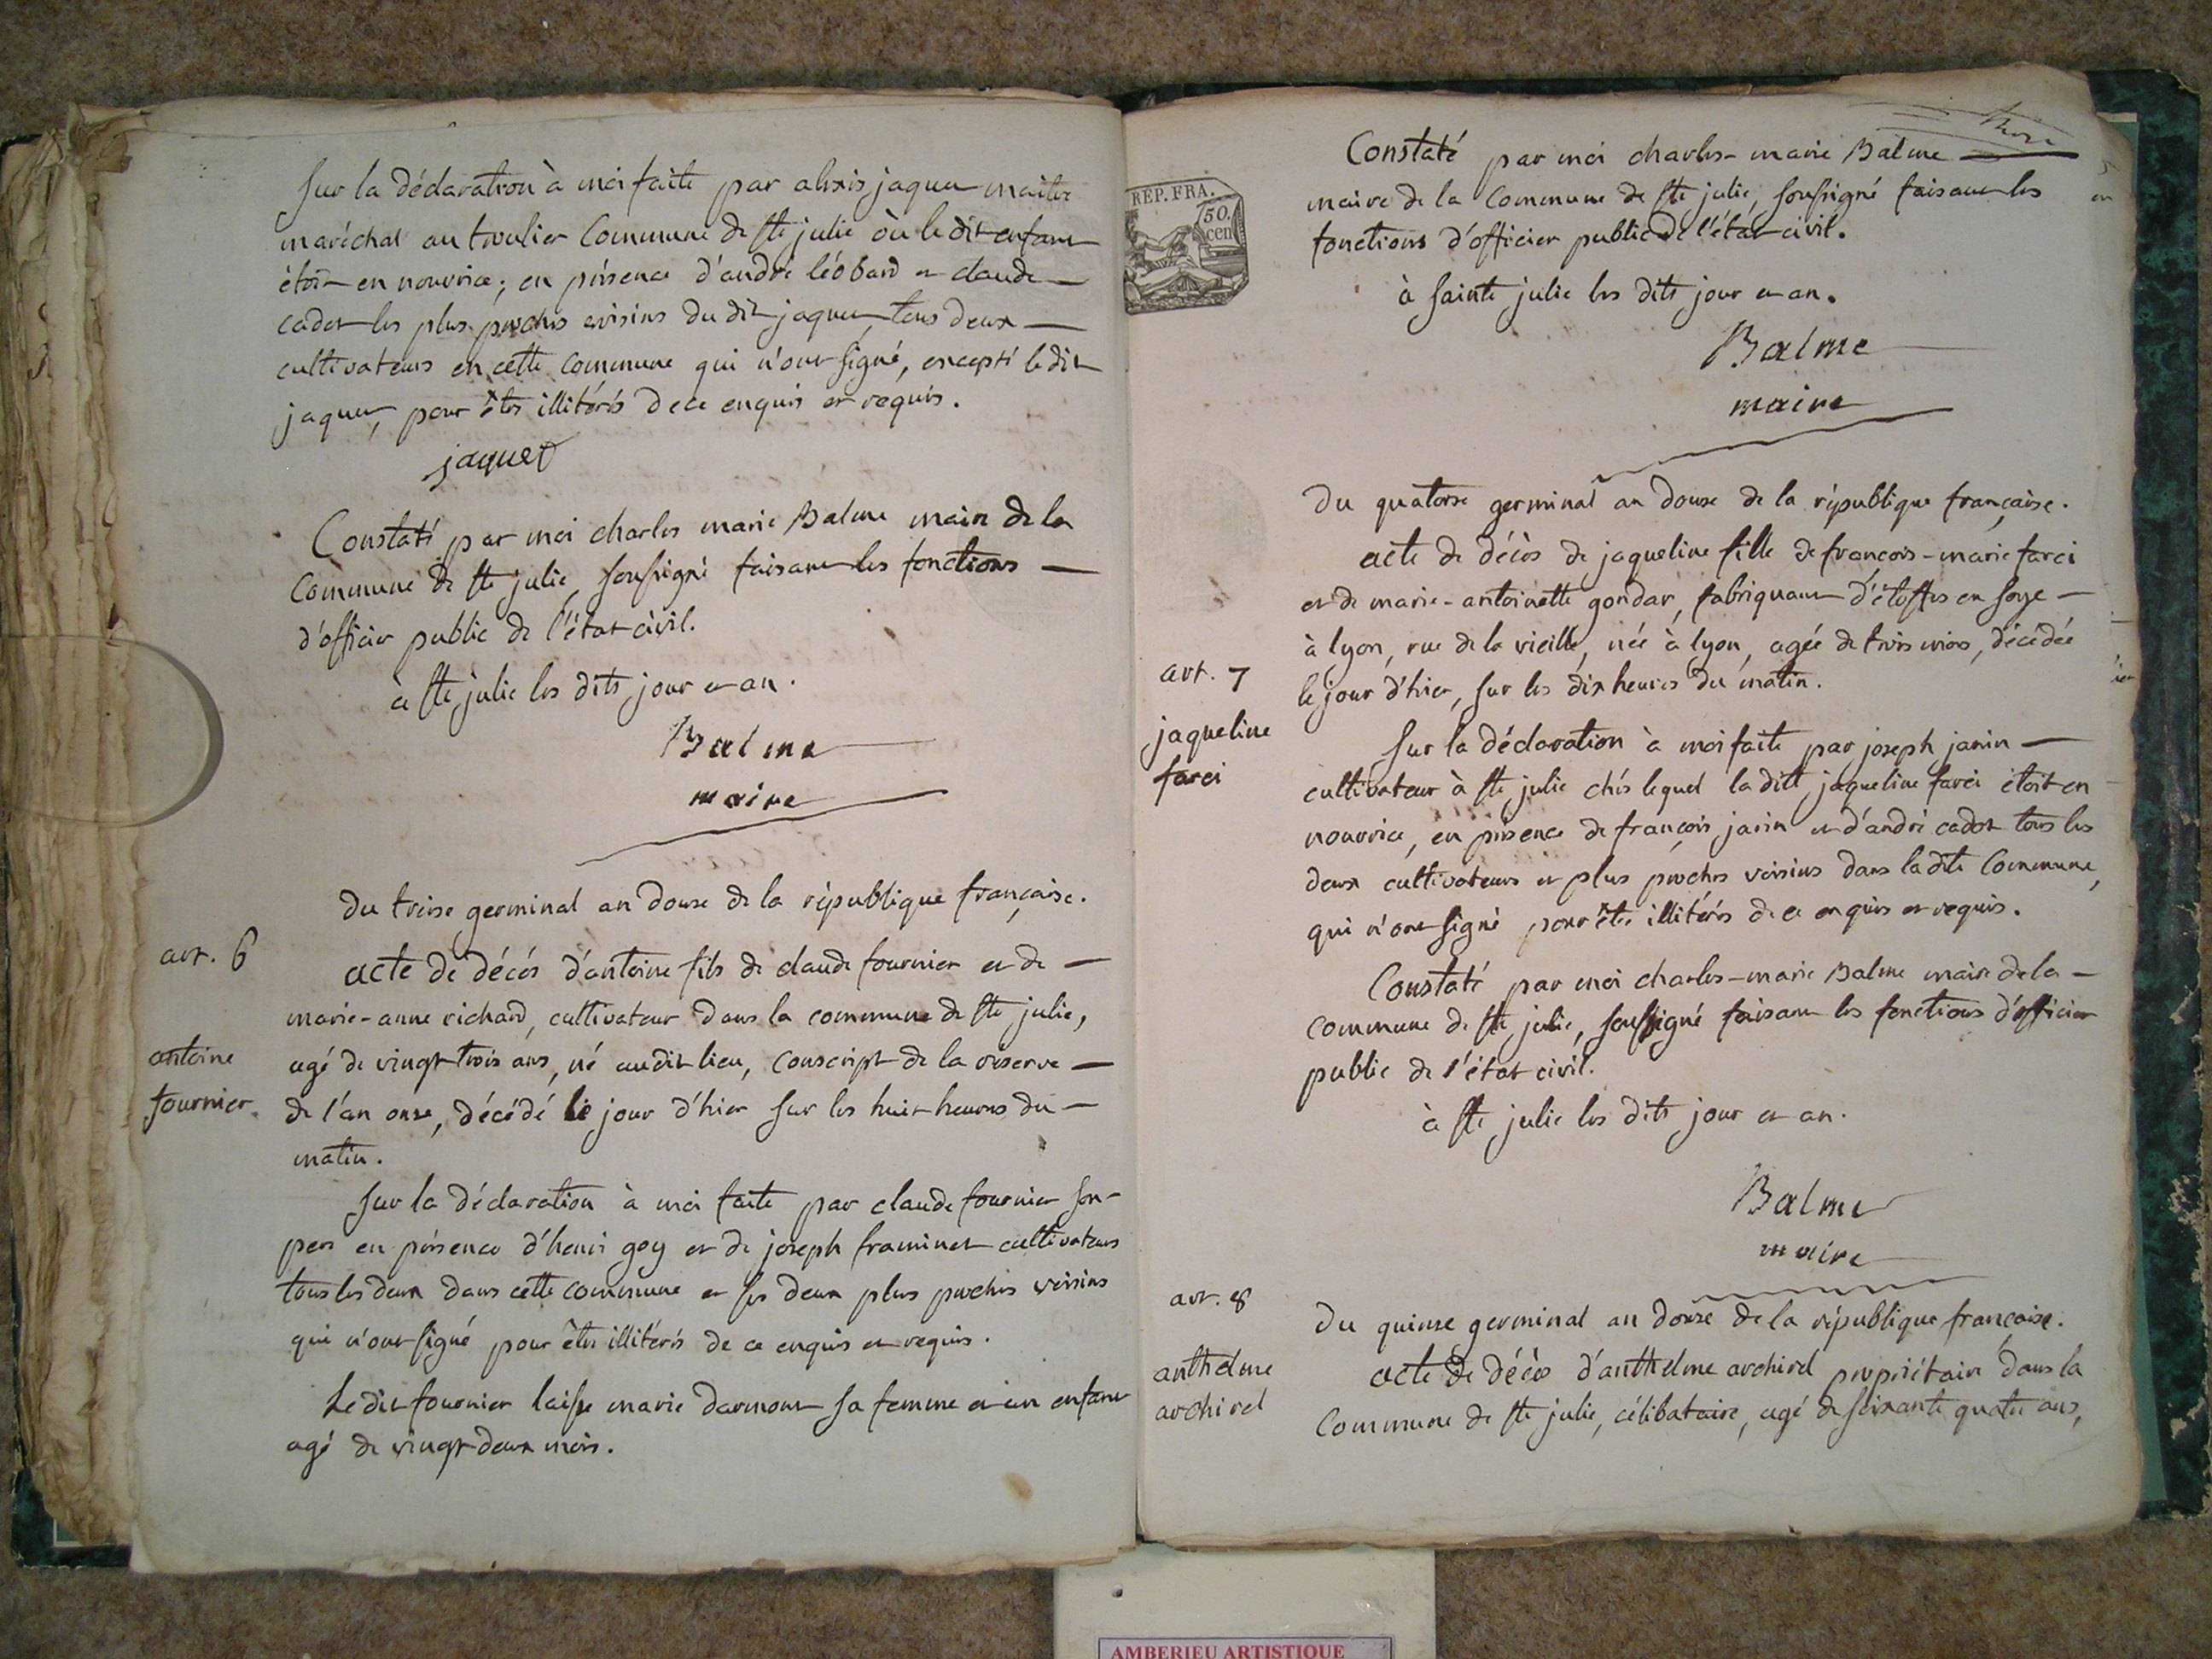 Sur la déclaration à moi faite par alexis jaquet maitre
maréchal au troulier Commune de Ste julie où le dit enfant
étoit en nourrice; en présence d'andré léobard et claude
cadot les plus proches voisins du dit jaquet, tous deux
cultivateurs en cette commune qui n'ont signé, excepté le dit
jaquet, pour être illitérés de ce enquis et requis.
jaquet
Constaté par moi charles marie Balme maire de la
Commune de Ste julie, soussigné faisant les fonctions
d'officier public de l'état civil.
à Ste julie les dits jour et an.
Balme
maire
Du treise germinal an douse de la république française.
art. 6
antoine
fournier
acte de décés d'antoine fils de claude fournier et de
marie-anne richard, cultivateur dans la commune de Ste julie,
agé de vingt trois ans, né audit lieu, conscript de la réserve
de l'an onse, décédé le jour d'hier sur les huit heures du
matin.
Sur la déclaration à moi faite par claude fournier son
pere en présence d'henri goy et de joseph framinet cultivateurs
tous les deux dans cette commune et ses deux plus proches voisins
qui n'ont signé pour être illitérés de ce enquis et requis.
Le dit fournier laisse marie darmont sa femme et un enfant
agé de vingt deux mois.
REP. FRA.
50.
cen
Constaté par moi charles-marie Balme
maire de la Commune de Ste julie, soussigné faisant les
fonctions d'officier public de l'état civil.
à Sainte julie les dits jour et an.
Balme
maire
Du quatorse germinal an douse de la république française.
art. 7
jaqueline
farci
acte de décès de jaqueline fille de francois-marie farci
et de marie-antoinette gondar, fabriquant d'étoffes en soye
à lyon, rue de la vieille, née à lyon, agée de trois mois, décédée
le jour d'hier, sur les dix heures du matin.
Sur la déclaration à moi faite par joseph janin
cultivateur à Ste julie chés lequel la dite jaqueline farci étoit en
nourrice, en présence de françois janin et d'andré cadot tous les
deux cultivateurs et plus proches voisins dans ladite Commune,
qui n'ont signé pour être illitérés de ce enquis et requis.
Constaté par moi charles-marie Balme maire de la
commune de Ste julie, soussigné faisant les fonctions d'officier
public de l'état civil.
à Ste julie les dits jour et an.
Balme
maire
art. 8
anthelme
archirel
Du quinse germinal an douse de la république française.
acte de décès d'anthelme archirel propriétaire dans la
Commune de Ste julie, célibataire, agé de soixante quatre ans,
AMBERIEU ARTISTIQUE